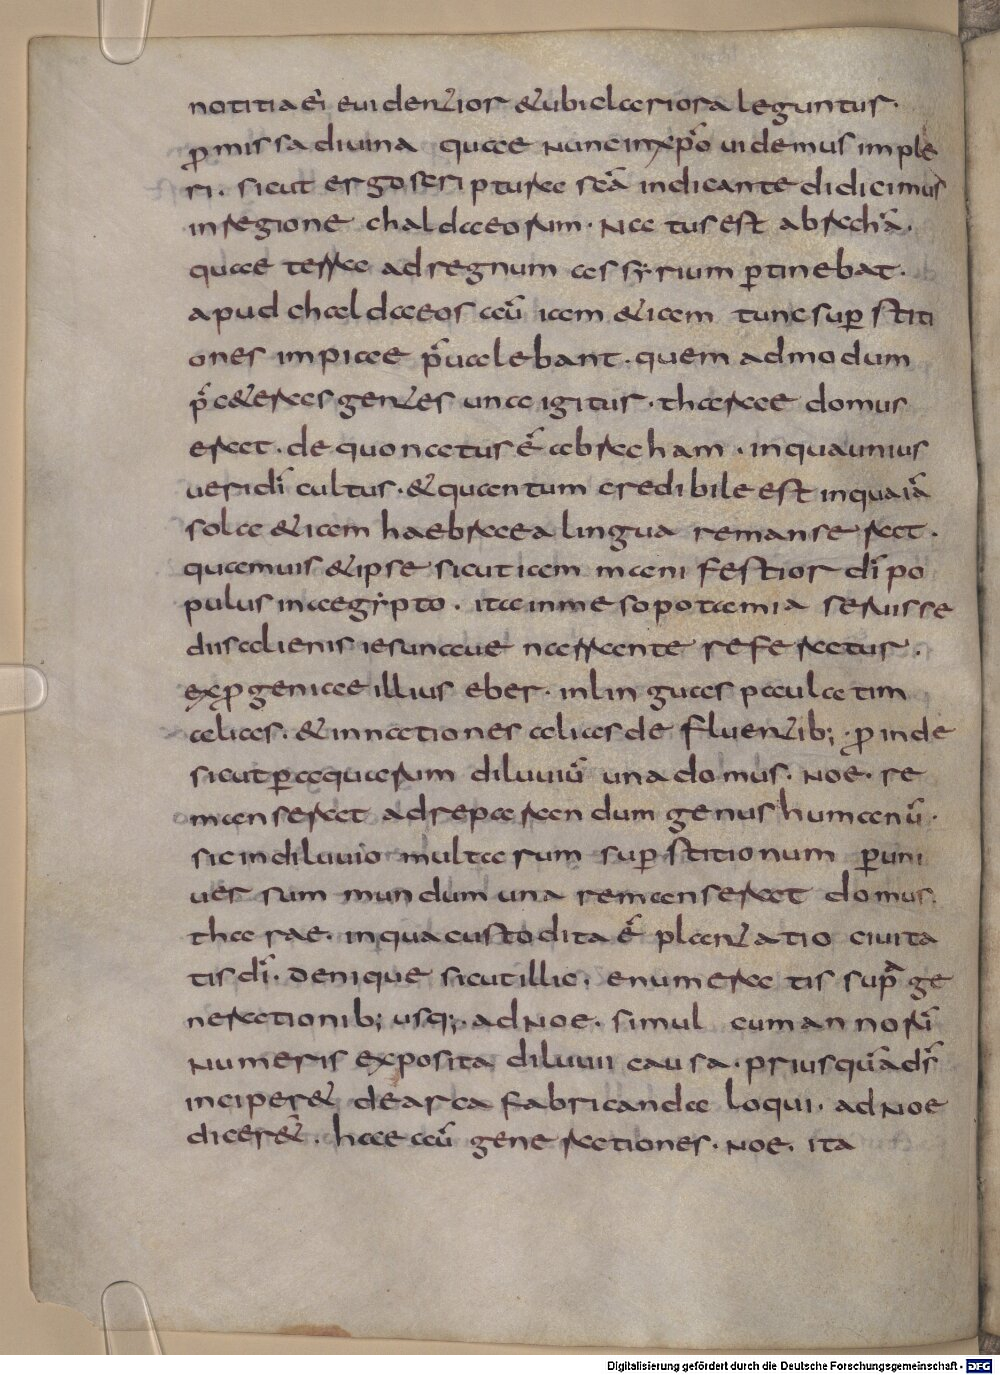 notitia eí euidentior & ubi clariora leguntur.
p̄missa diuina quae nunc in xp̄o uidemus imple
ri. sicut ergo scripturae scā indicante didicimus
in regione chaldaeorum. Natus est abrachā.
quae terra ad regnum assyrium ptinebat.
apud chaldaeos aū iam & iam tunc sup stiti
ones impiae p̄ualebant. quem admodum
p̄c&eras gentes una igitur. tharae domus
erat. de quo natus ē abracham. in qua unius
ueri dī cultus. & quantum credibile est in qua iā
sola & iam haebraea lingua remanserat.
quamuis & ipse sicut iam manifestior dī po
pulus in aegypto. ita in mesopotamia seruisse
diis alienis iesu naue narrante referatur.
ex progeniae illius eber. in linguas paulatim
alias. & in nationes alias defluentib; . proinde
sicut p aquarum diluuiū una domus. Noe. re
manserat ad reparandum genus humanū.
sic in diluuio multarum sup stitionum p uni
uersum mundum una remanserat domus.
tharae. in qua custodita ē plantatio ciuita
tis dī. Denique sicut illic. enumeratis supra ge
nerationib; usq; ad Noe. simul cum annorū
Numeris exposita diluuii causa. priusquā ds̄
inciper& de arca fabricanda loqui. ad Noe
dicer&. hae aū generationes. Noe. ita
Digitalisierung gefördert durch die Deutsche Forschungsgemeinschaft - DFG